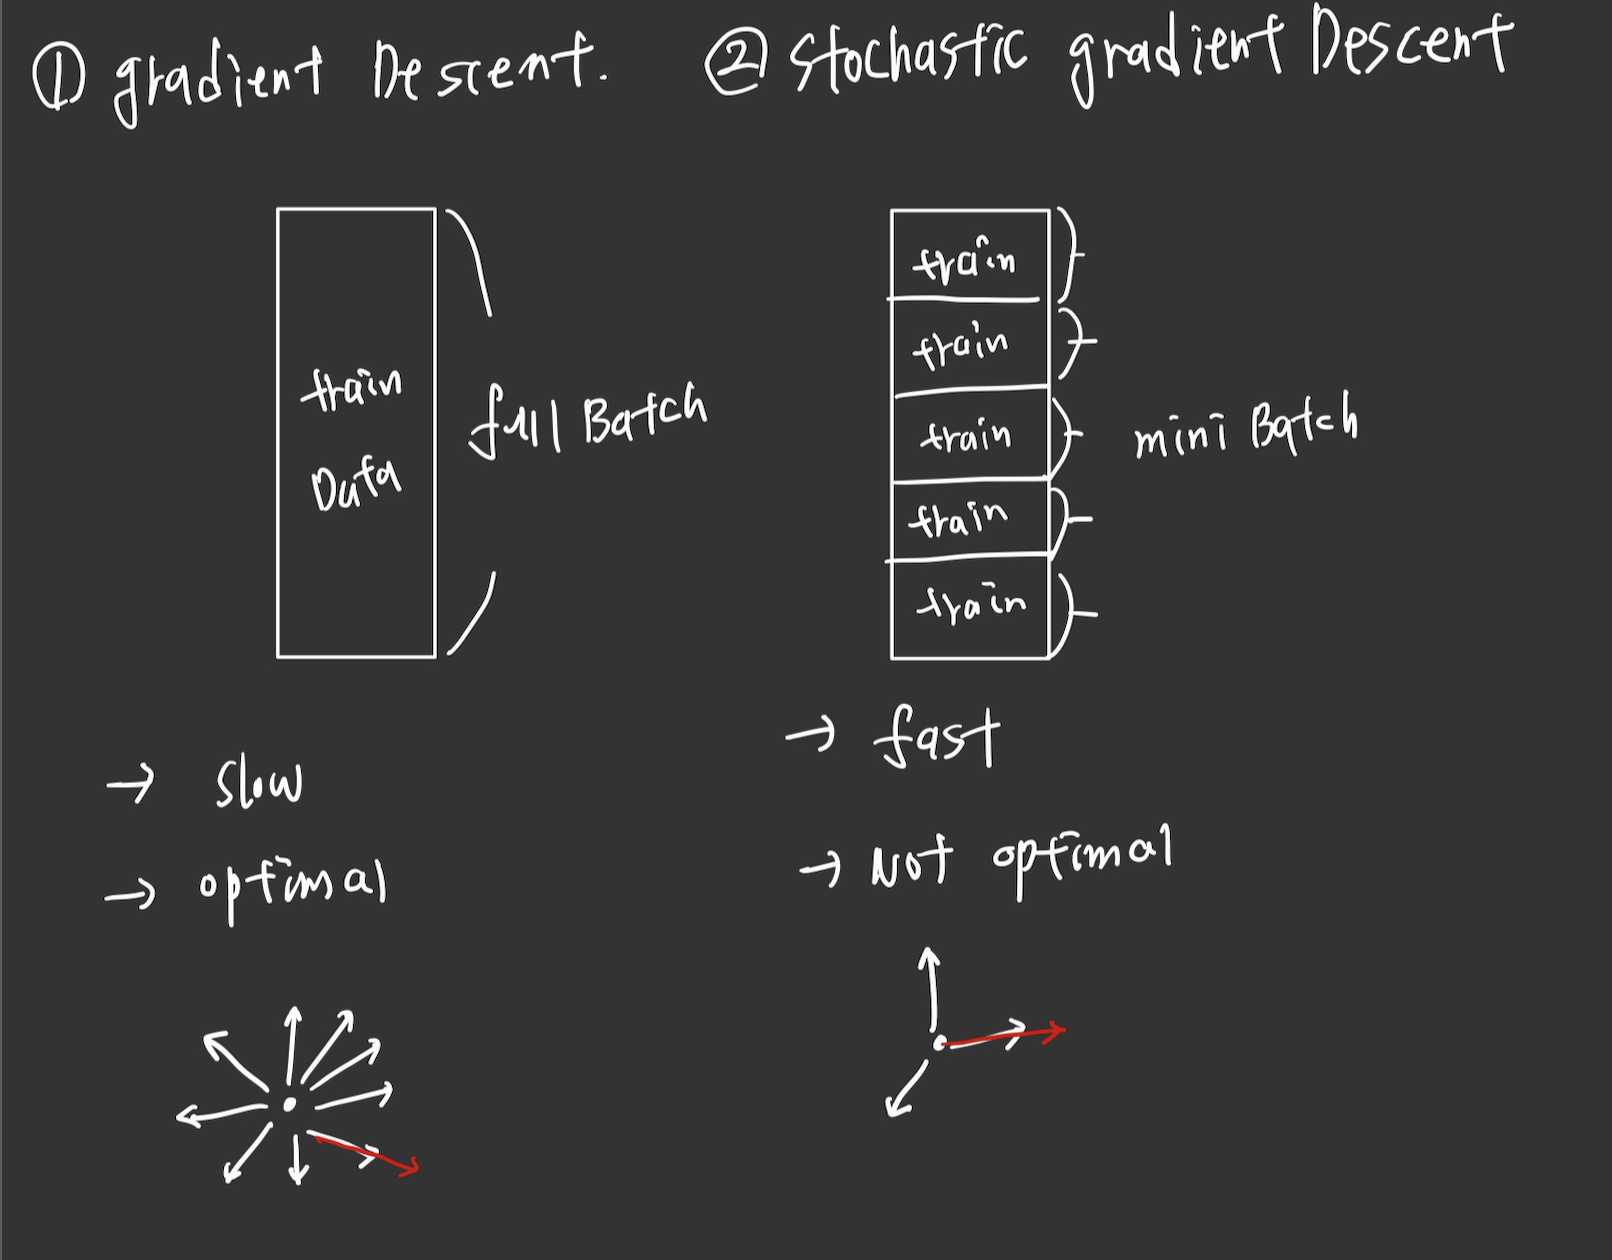 ① gradient Descent.
② Stochastic gradient Descent
train
Data
full Batch
→ slow
→ optimal
train
train
train
train
train
mini Batch
→ fast
→ Not optimal